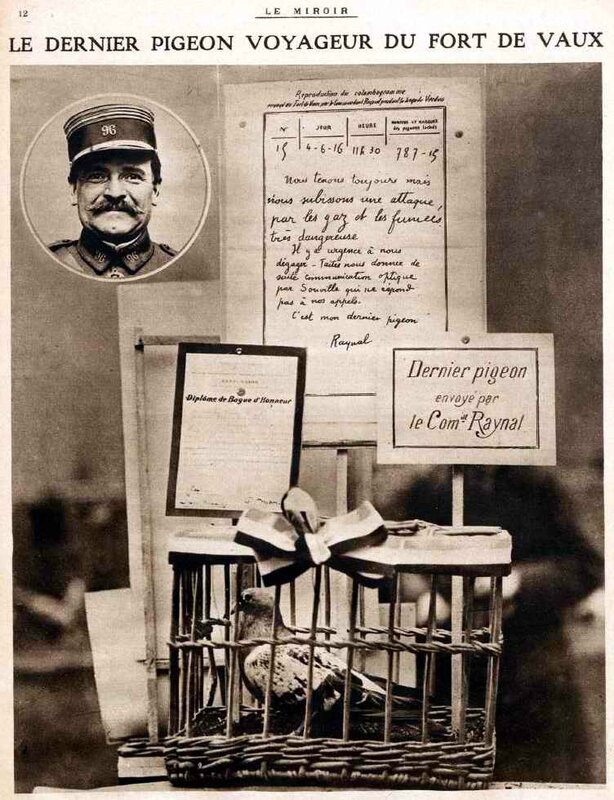 12
LE MIROIR
LE DERNIER PIGEON VOYAGEUR DU FORT DE VAUX
96
96 96
Reproduction du colombogramme
envoyé du Fort de Vaux, par le Commandant Raynal pendant le siège de Verdun
N° JOUR HEURE
des pigeons lâchés
15 4-6-16 11h30 787-15
Nous tenons toujours mais
nous subissons une attaque
par les gaz et les fumées
très dangereuse
Il y a urgence à nous
dégager - Faites nous donner de
suite communication optique
par Souville qui ne répond
pas à nos appels.
C'est mon dernier pigeon
Raynal
Diplôme de Bague d'Honneur
Dernier pigeon
envoyé par
le Comdt Raynal